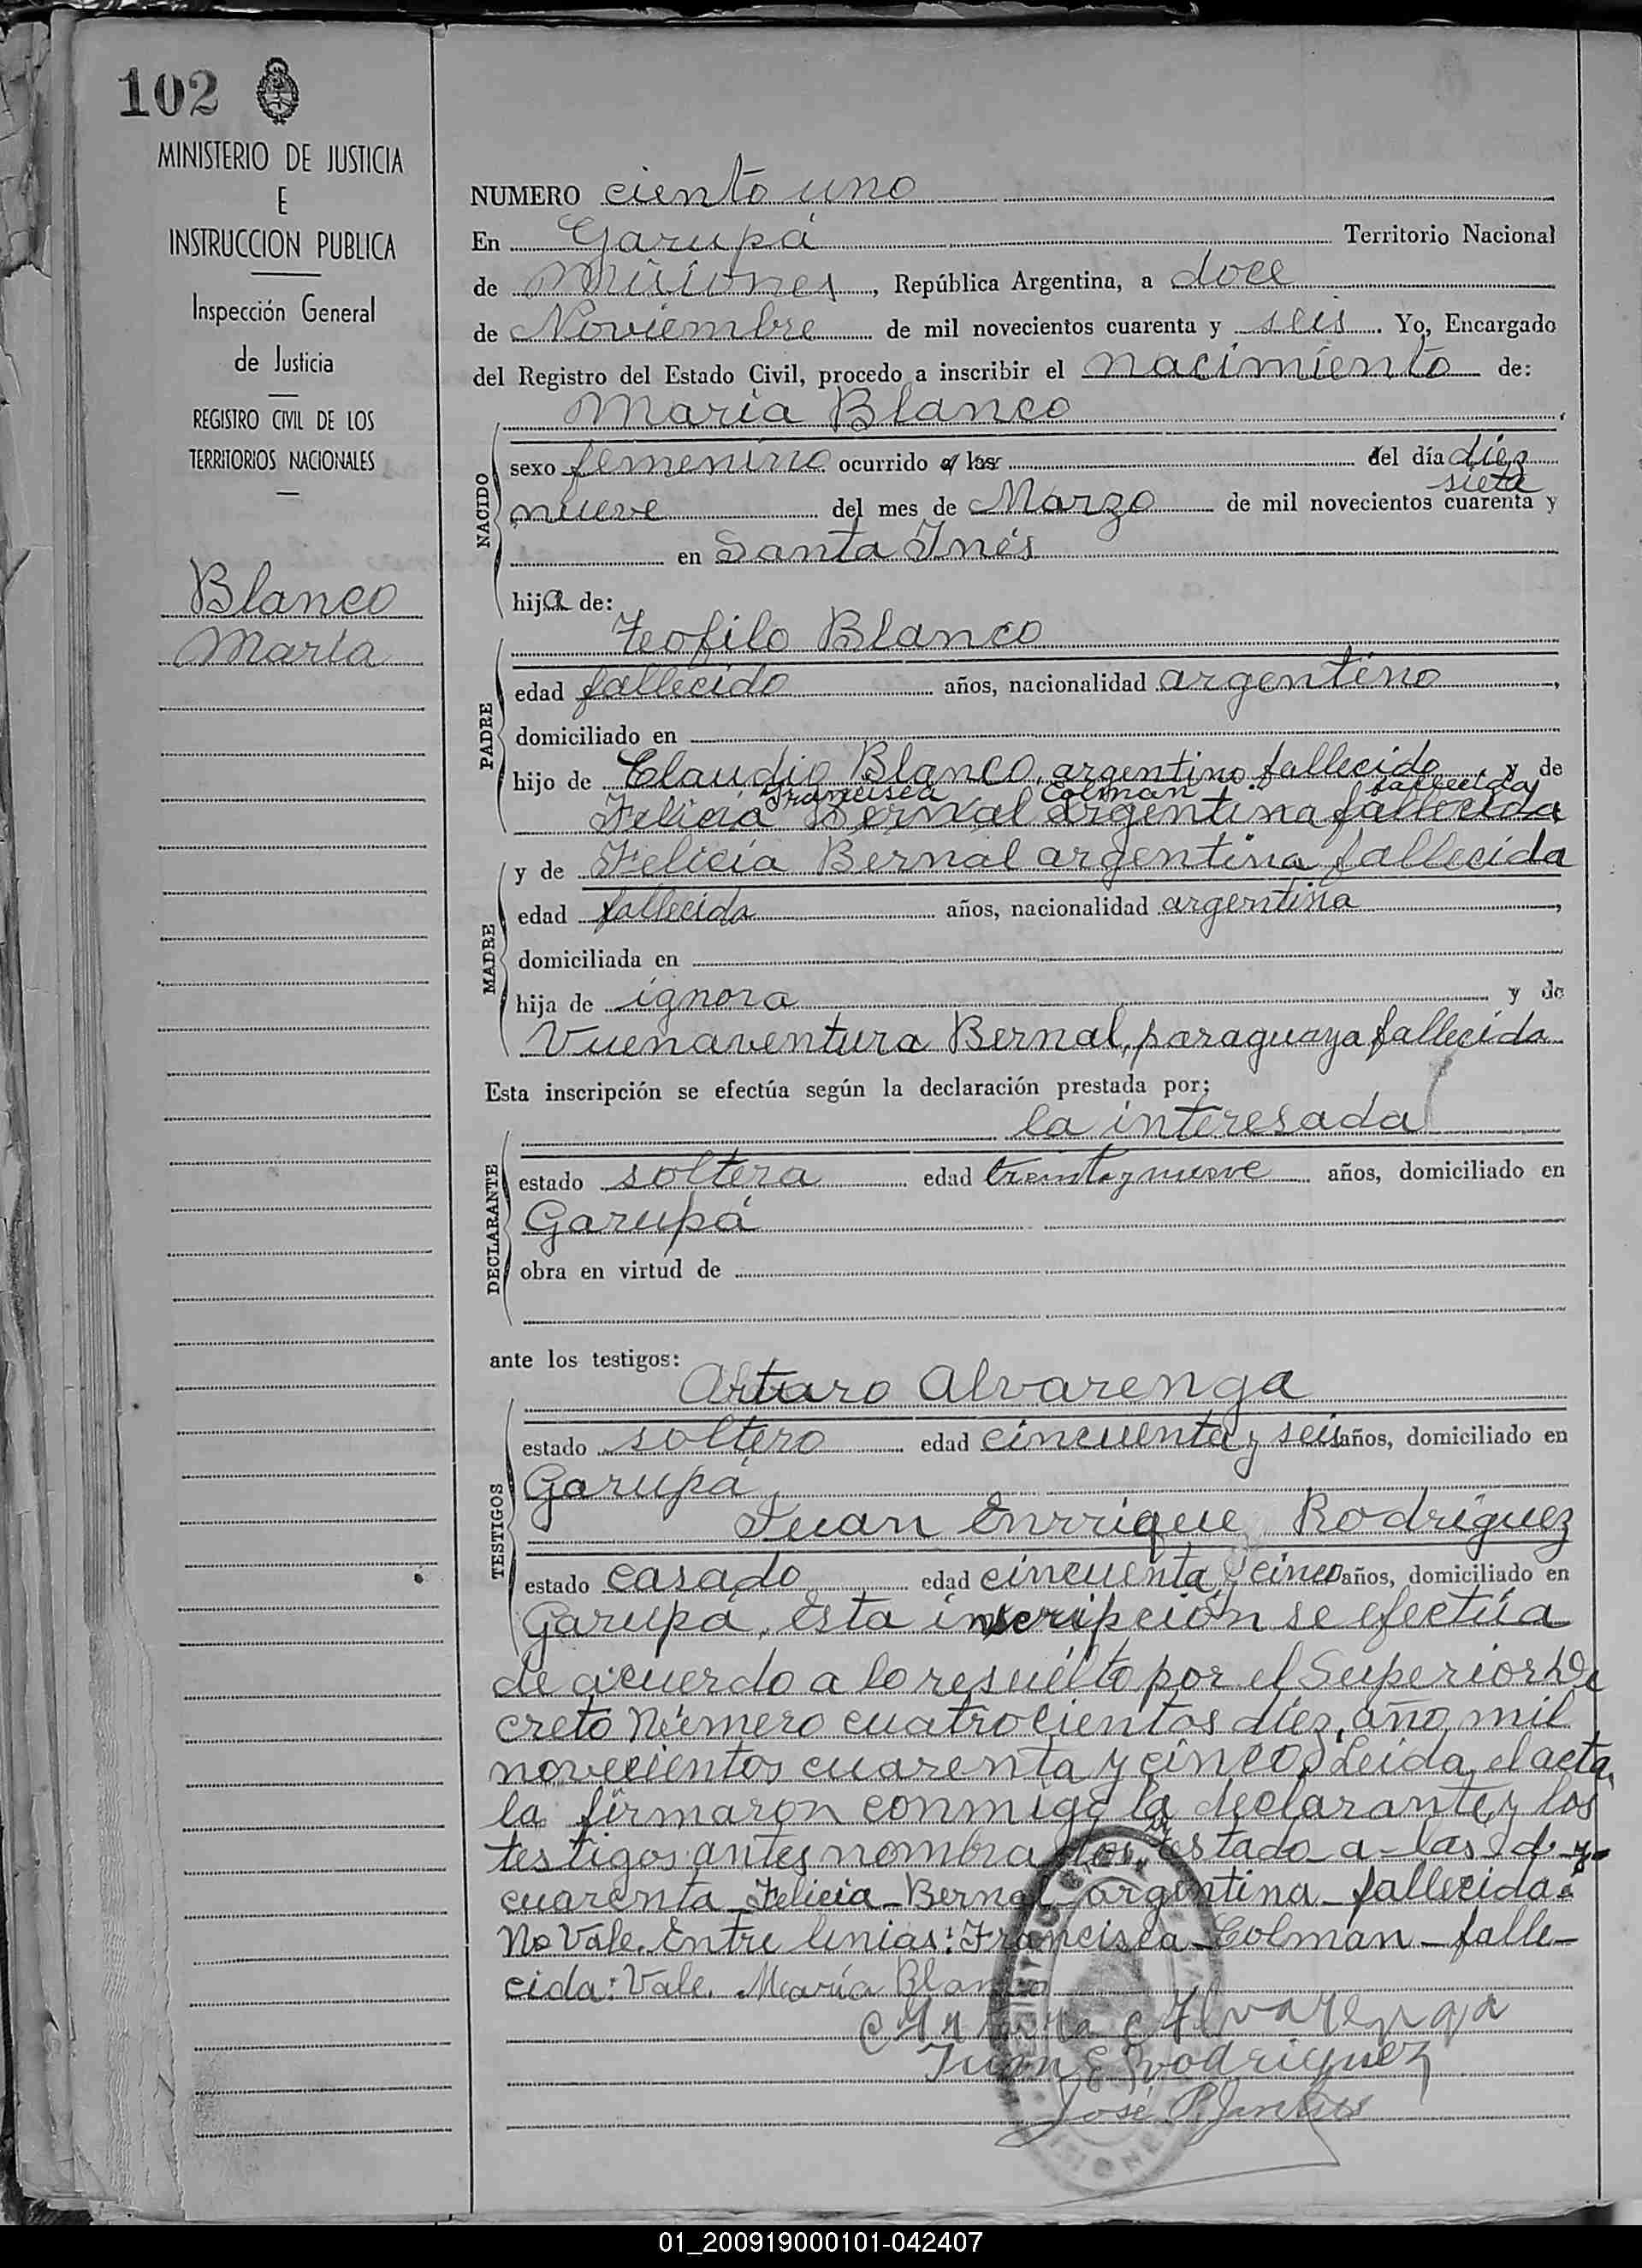 102
MINISTERIO DE JUSTICIA
E
INSTRUCCION PUBLICA
Inspección General
de Justicia
REGISTRO CIVIL DE LOS
TERRITORIOS NACIONALES
Blanco
María
NUMERO ciento uno
En Garupá Territorio Nacional
de Misiones, República Argentina, a doce
de Noviembre de mil novecientos cuarenta y seis. Yo, Encargado
del Registro del Estado Civil, procedo a inscribir el nacimiento de:
María Blanco
NACIDO
sexo femenino ocurrido a las del día diez
siete
nueve del mes de Marzo de mil novecientos cuarenta y
en Santa Inés
hija de:
Teofilo Blanco
PADRE
edad fallecido años, nacionalidad argentino,
domiciliado en
hijo de Claudio Blanco, argentino fallecido y de
Francisca Colman fallecida
Felicia Bernal Argentina fallecida
y de Felicia Bernal argentina fallecida
MADRE
edad fallecida años, nacionalidad argentina,
domiciliada en
hija de ignora y de
Vuenaventura Bernal, paraguaya fallecida
Esta inscripción se efectúa según la declaración prestada por:
la interesada
DECLARANTE
estado soltera edad treinta y nueve años, domiciliado en
Garupá
obra en virtud de
ante los testigos:
Arturo Alvarenga
TESTIGOS
estado soltero edad cincuenta y seis años, domiciliado en
Garupá
Juan Enrrique Rodríguez
estado casado edad cincuenta y cinco años, domiciliado en
Garupá. Esta inscripción se efectúa
de acuerdo a lo resuelto por el Superior De
creto Número cuatrocientos diez, año mil
novecientos cuarenta y cinco. Leida el acta,
la firmaron conmigo la declarante y los
testigos antes nombrados. Testado a-las-d-y-
cuarenta-Felicia-Bernal-argentina-fallecida:
No Vale. Entre linias: Francisca-Colman-falle-
cida: Vale. María Blanco
Arturo Alvarenga
Juan E Rodriguez
José
MISIONES
01_200919000101-042407